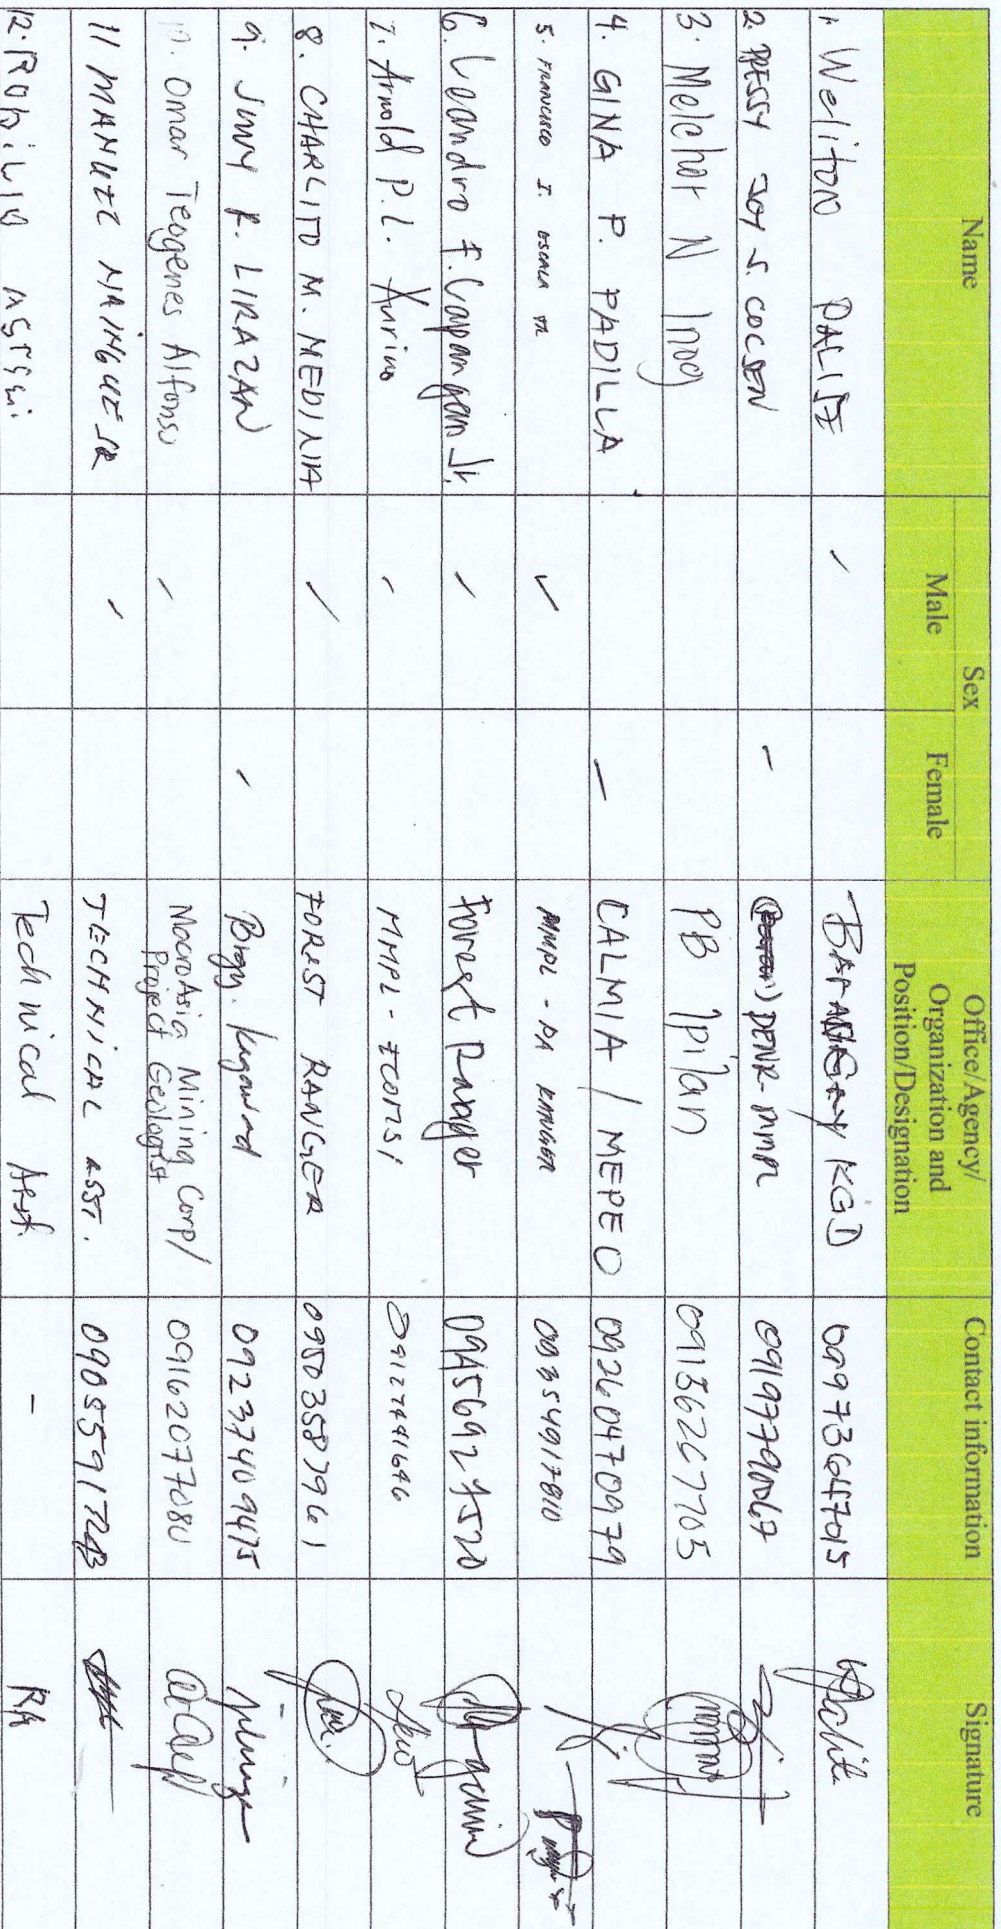 Name
Sex
Male
Female
Office/Agency/
Organization and
Position/Designation
Contact information
Signature
1. Weliton PALISE BARANGAY KGD 09973647015
2. PRESSY JOY S. COCSEN DENR-MMPL 09197790067
3. Melchor N Inog PB Ipilan 09136267703
4. GINA P. PADILLA CALMIA / MEPEO 09260470979
5. FRANCISCO I. ESCALA JR MMPL - PA RANGER 09354917810
6. Leandro F. Capangan Jr. Forest Ranger 09456927520
7. Arnold P.L. MMPL - 09127441646
8. CHARLITO M. MEDINA FOREST RANGER 09503587961
9. R. LIRAZAN Brgy. Kagawad 09237409475
10. Omar Teogenes Alfonso MacroAsia Mining Corp/
Project Geologist 09162077080
11 MANUEL NAINGUE SR TECHNICAL ASST. 09055917263
12. Technical Asst. -
RA